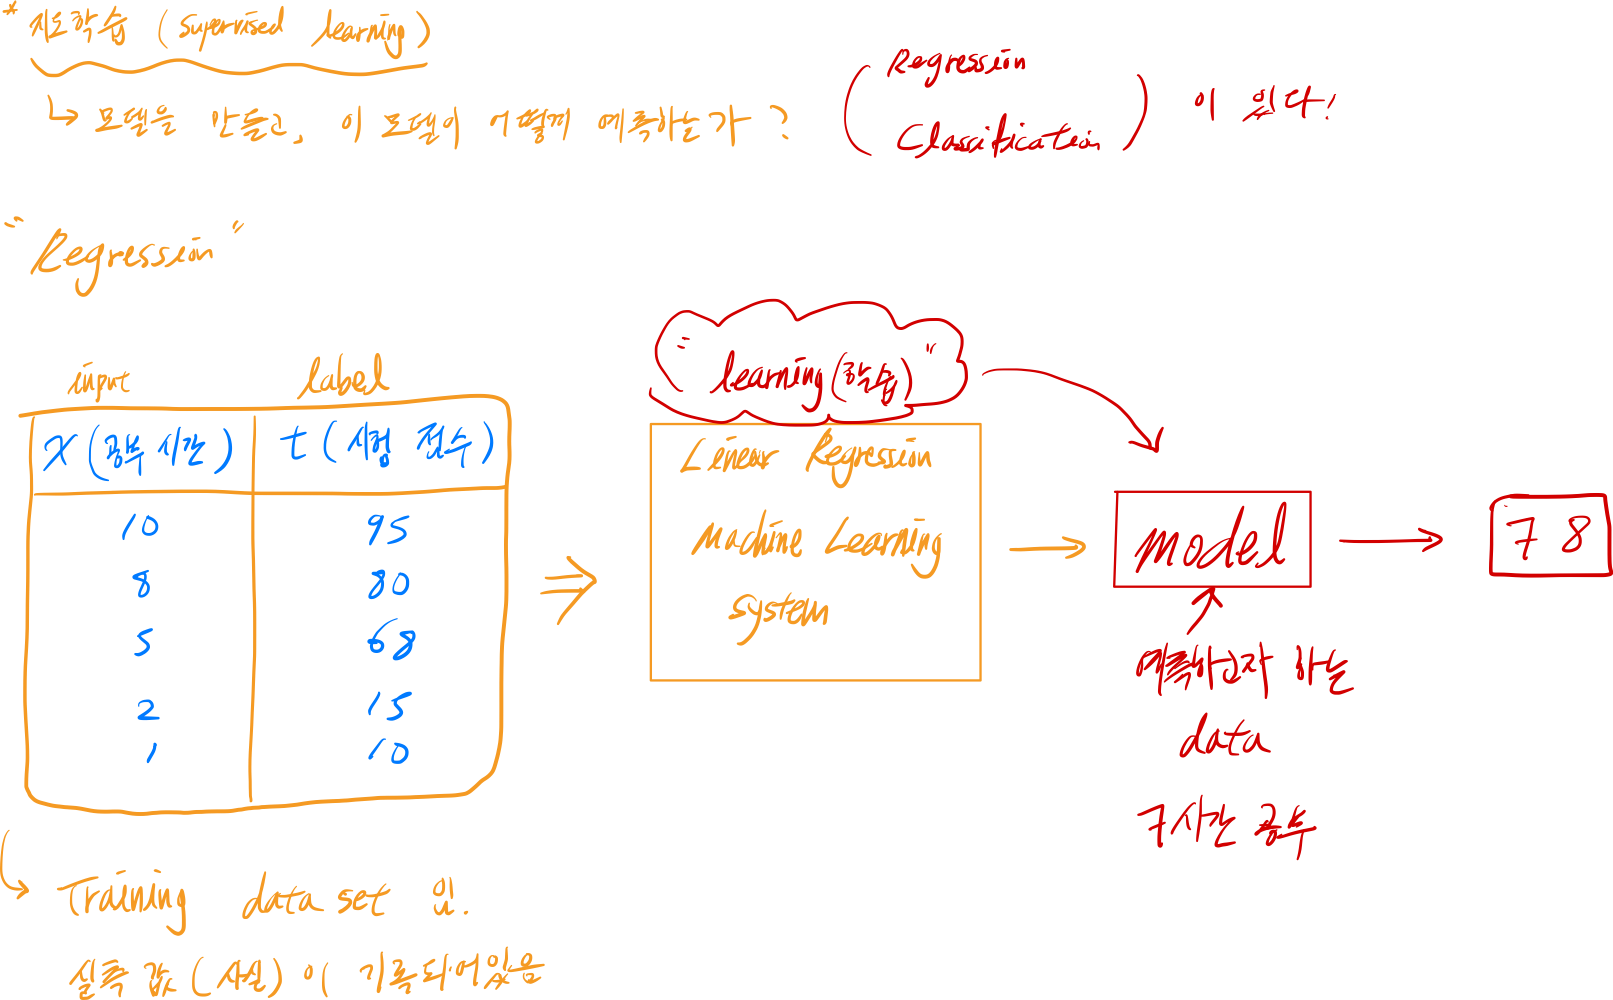 * 지도학습 (supervised learning)
↳ 모델을 만들고, 이 모델이 어떻게 예측하는가?
( Regression
Classification ) 이 있다!
"Regression"
input label
x (공부 시간) t (시험 점수)
10 95
8 80
5 68
2 15
1 10
Training data set 임.
실측 값 (사실) 이 기록되어있음
"learning (학습)"
Linear Regression
Machine Learning
system
model
예측하고자 하는
data
7시간 공부
78